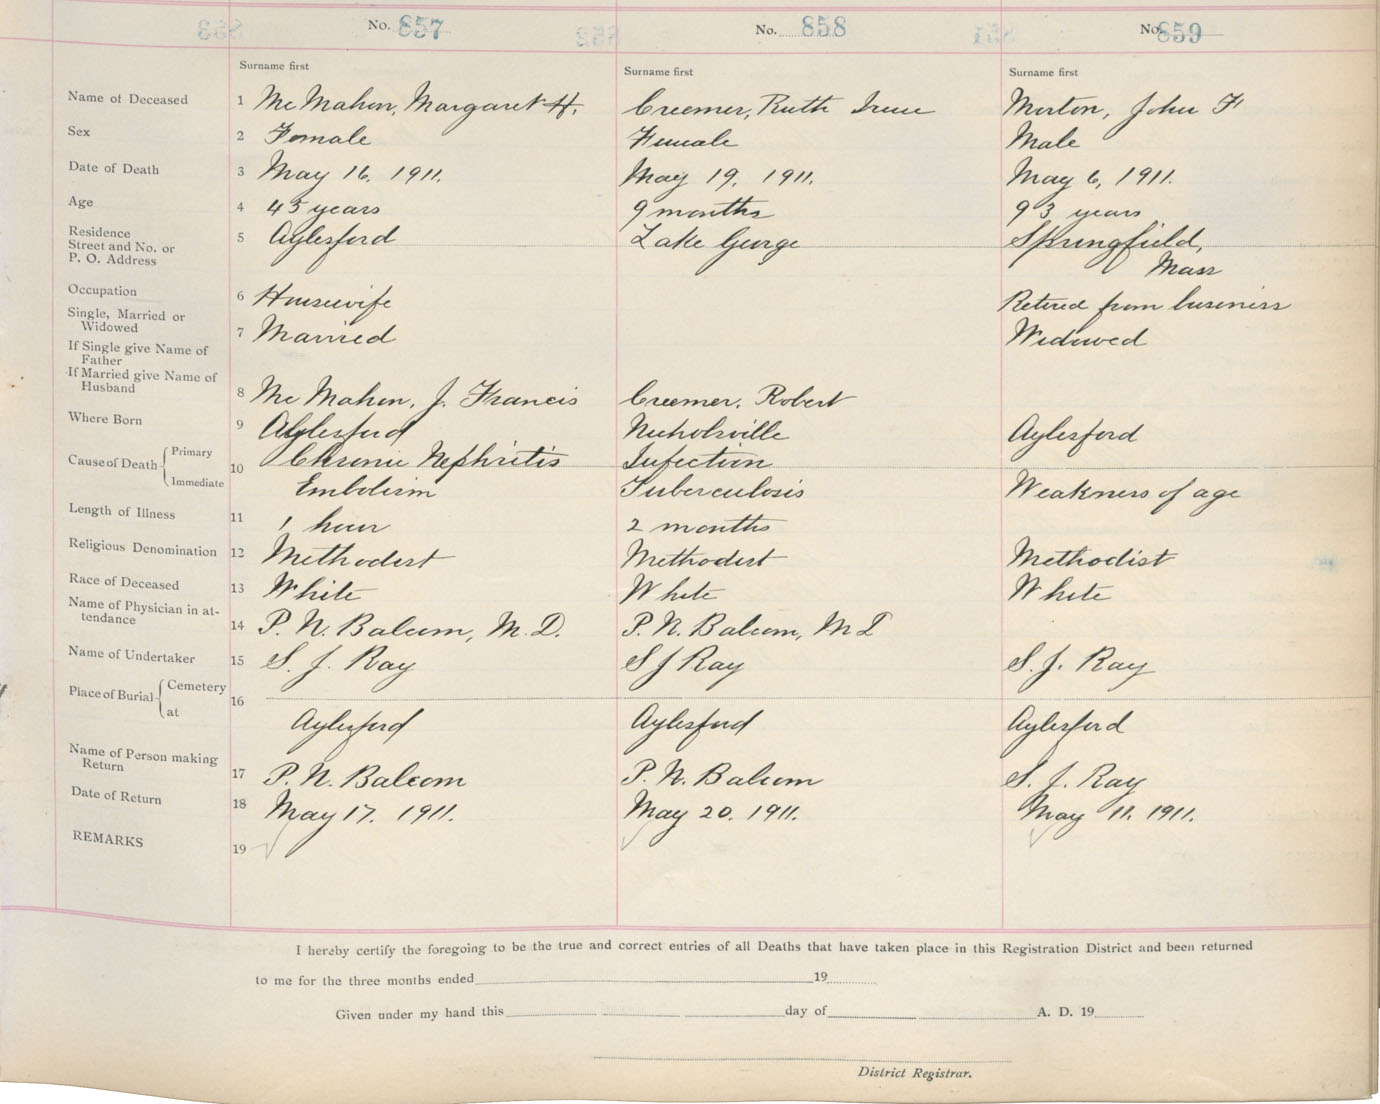 No. 857 No. 858 No. 859
Surname first Surname first Surname first
Name of Deceased 1 McMahon, Margaret H. Creemer, Ruth Irene Morton, John F
Sex 2 Female Female Male
Date of Death 3 May 16. 1911. May 19. 1911. May 6, 1911.
Age 4 45 years 9 months 93 years
Residence
Street and No. or 5 Aylesford Lake George Springfield,
P. O. Address Mass
Occupation 6 Housewife Retired from business
Single, Married or
Widowed 7 Married Widowed
If Single give Name of
Father
If Married give Name of
Husband 8 McMahon, J. Francis Creemer, Robert
Where Born 9 Aylesford Nicholsville Aylesford
Cause of Death Primary 10 Chronic Nephritis Infection
Immediate Embolism Tuberculosis Weakness of age
Length of Illness 11 1 hour 2 months
Religious Denomination 12 Methodist Methodist Methodist
Race of Deceased 13 White White White
Name of Physician in at-
tendance 14 P. N. Balcom, M.D. P. N. Balcom, M D
Name of Undertaker 15 S. J. Ray S J Ray S. J. Ray
Place of Burial Cemetery 16
at Aylesford Aylesford Aylesford
Name of Person making
Return 17 P. N. Balcom P. N. Balcom S. J. Ray
Date of Return 18 May 17. 1911. May 20. 1911. May 11. 1911.
REMARKS 19
I hereby certify the foregoing to be the true and correct entries of all Deaths that have taken place in this Registration District and been returned
to me for the three months ended 19
Given under my hand this day of A. D. 19
District Registrar.